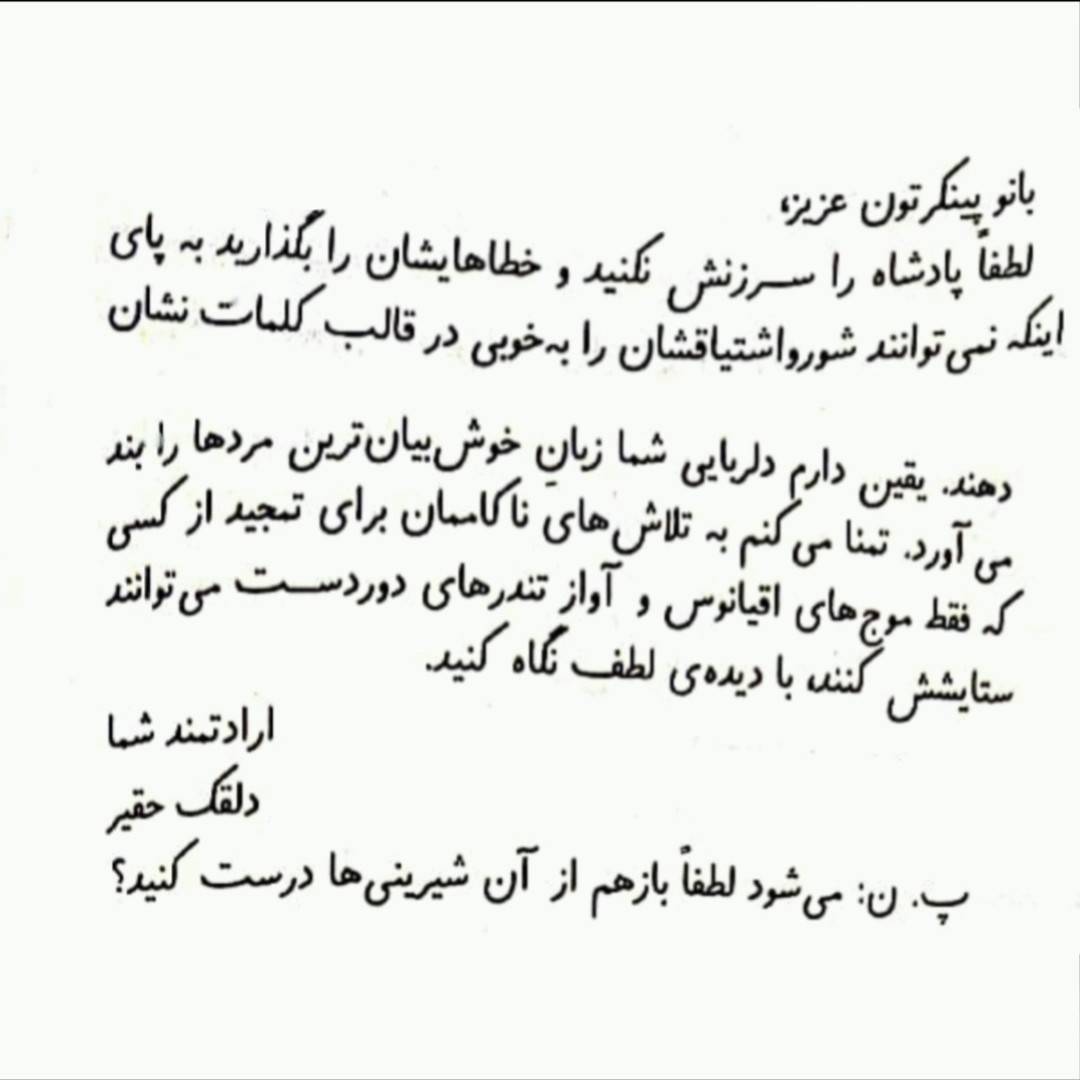 بانو پینکرتون عزیز،
لطفاً پادشاه را سرزنش نکنید و خطاهایشان را بگذارید به پای
اینکه نمی‌توانند شورواشتیاقشان را به‌خوبی در قالب کلمات نشان
دهند. یقین دارم دلربایی شما زبانِ خوش‌بیان‌ترین مردها را بند
می‌آورد. تمنا می‌کنم به تلاش‌های ناکاممان برای تمجید از کسی
که فقط موج‌های اقیانوس و آواز تندرهای دوردست می‌توانند
ستایشش کنند، با دیده‌ی لطف نگاه کنید.
ارادتمند شما
دلقک حقیر
پ. ن: می‌شود لطفاً بازهم از آن شیرینی‌ها درست کنید؟